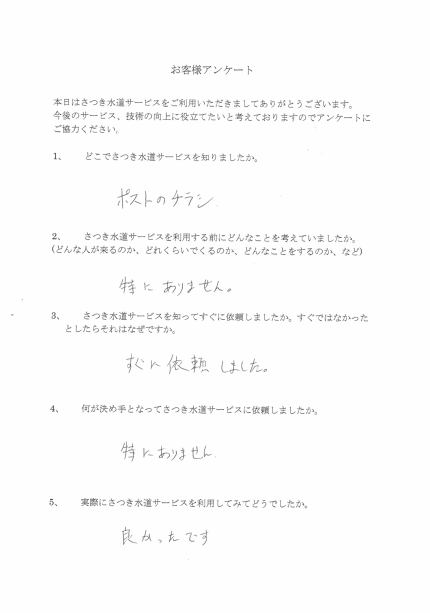 お客様アンケート
本日はさつき水道サービスをご利用いただきましてありがとうございます。
今後のサービス、技術の向上に役立てたいと考えておりますのでアンケートに
ご協力ください。
1、 どこでさつき水道サービスを知りましたか。
ポストのチラシ.
2、 さつき水道サービスを利用する前にどんなことを考えていましたか。
(どんな人が来るのか、どれくらいでくるのか、どんなことをするのか、など)
特にありません。
3、 さつき水道サービスを知ってすぐに依頼しましたか。すぐではなかった
としたらそれはなぜですか。
すぐに依頼しました。
4、 何が決め手となってさつき水道サービスに依頼しましたか。
特にありません.
5、 実際にさつき水道サービスを利用してみてどうでしたか。
良かったです